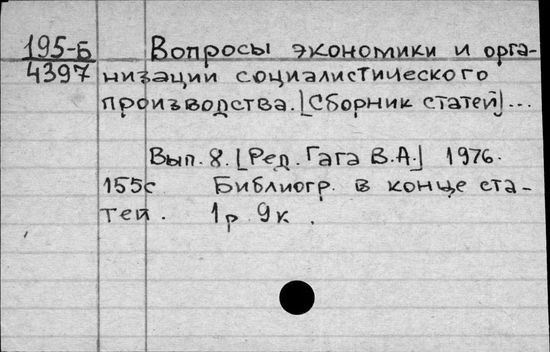 195-Б Вопросы экономики и орга-
4397 низации социалистического
производства. [Сборник статей]...
Вып. 8. [Ред. Гага В.А.] 1976.
155с Библиогр. в конце ста-
тей. 1р 9к.